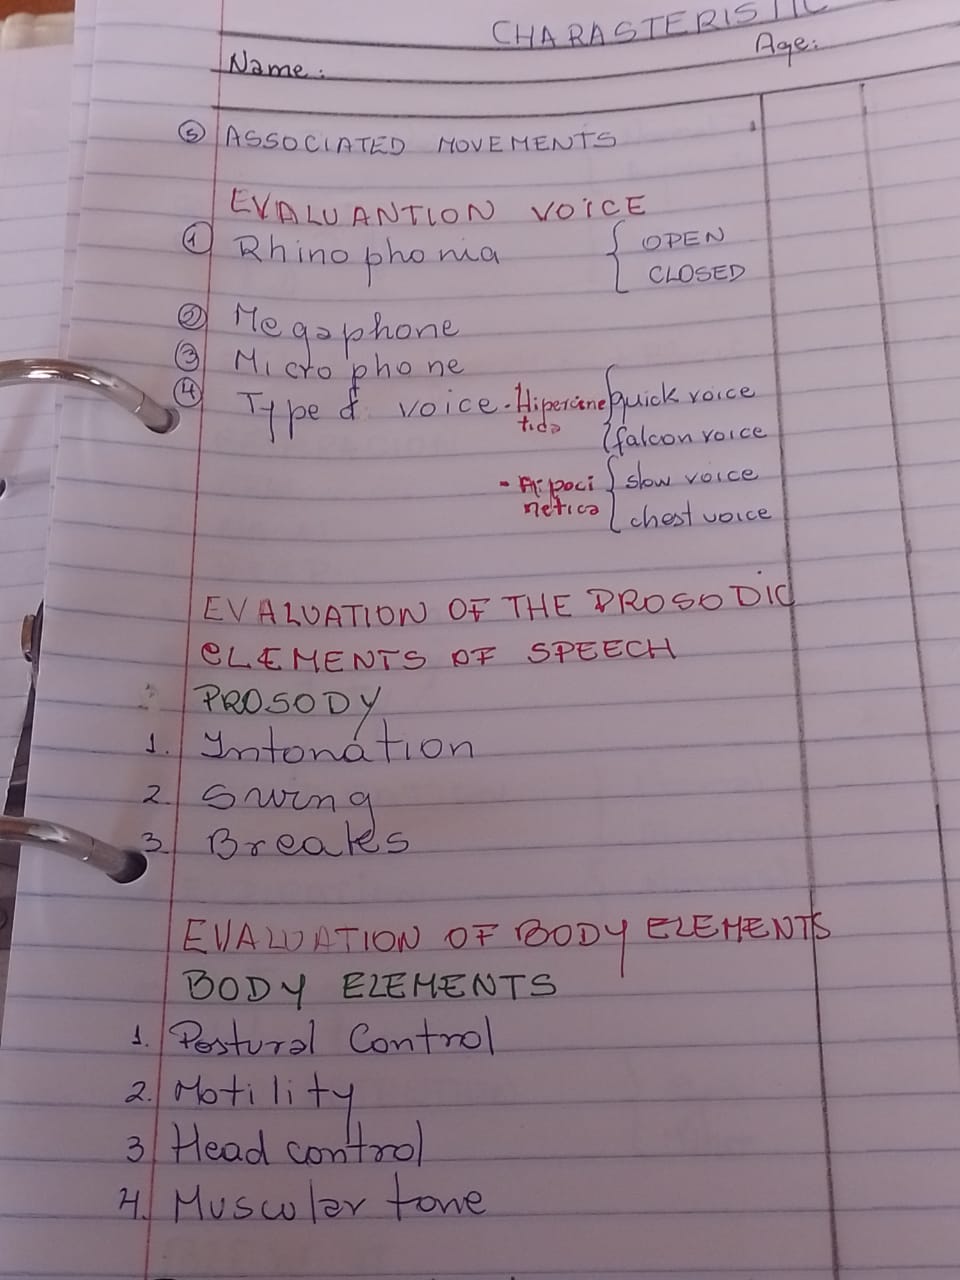 CHARASTERISTIC
Name: Age:
⑤ ASSOCIATED MOVEMENTS
EVALUANTION VOICE
① Rhinophonia { OPEN
CLOSED
② Megaphone
③ Microphone
④ Type of voice - Hipercine { quick voice
tida { falcon voice
- Hipoci { slow voice
netica { chest voice
EVALUATION OF THE PROSODIC
ELEMENTS OF SPEECH
PROSODY
1. Intonation
2. Swing
3. Breakes
EVALUATION OF BODY ELEMENTS
BODY ELEMENTS
1. Postural Control
2. Motility
3 Head control
4. Muscular tone